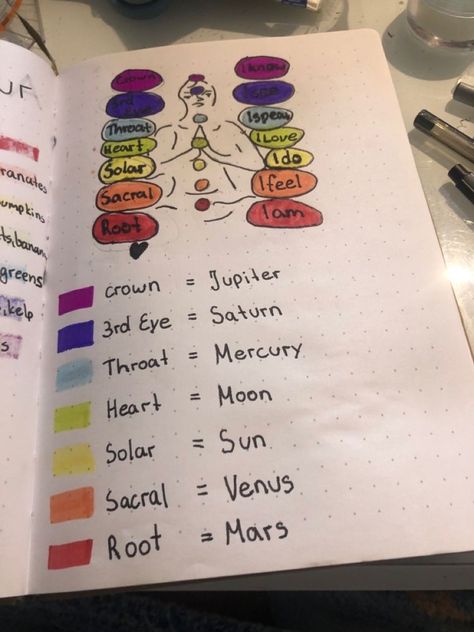 Crown
I know
3rd Eye
I see
Throat
I speak
Heart
I Love
Solar
I do
Sacral
I feel
Root
I am
Crown = Jupiter
3rd Eye = Saturn
Throat = Mercury
Heart = Moon
Solar = Sun
Sacral = Venus
Root = Mars
greens
kelp